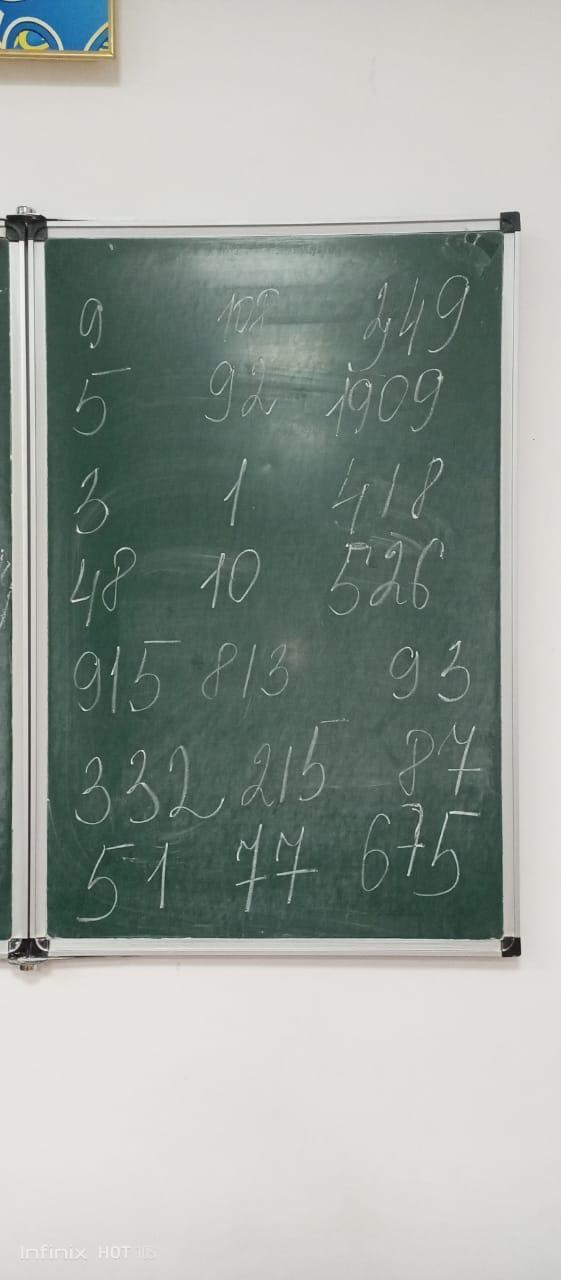 9 108 249
5 92 1909
3 1 418
48 10 526
915 813 93
332 215 87
51 77 675
Infinix HOT 11S